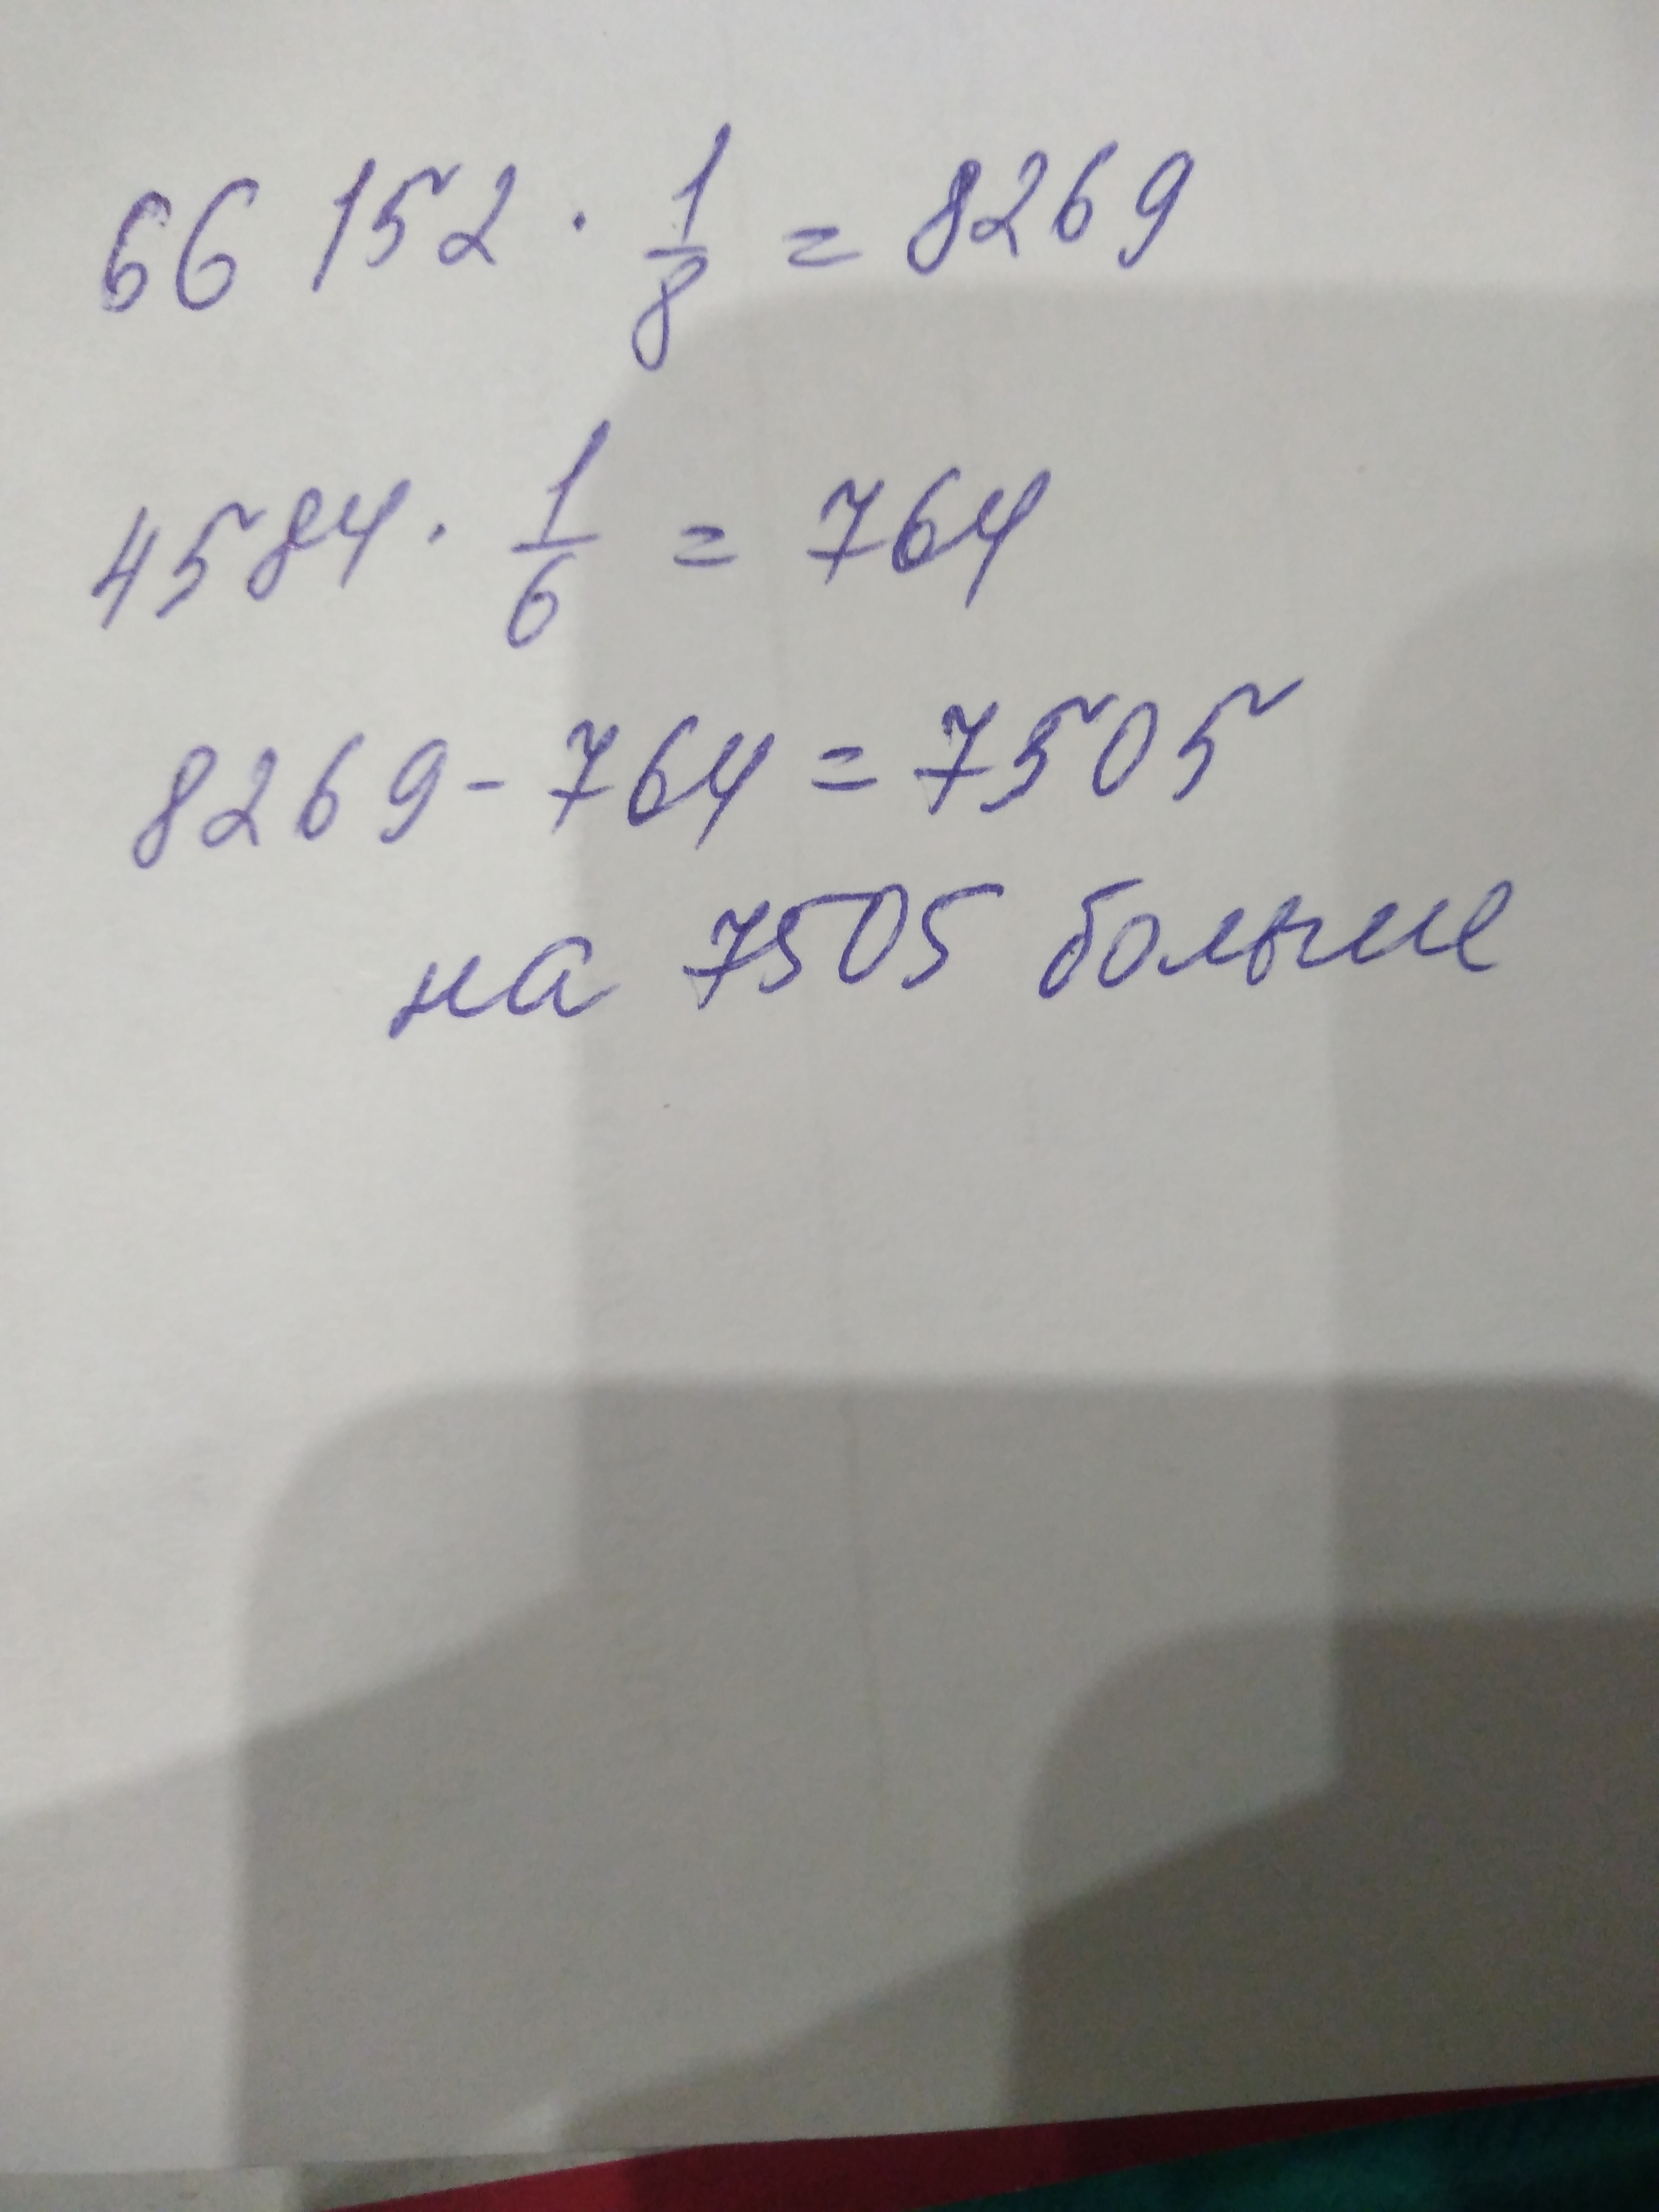 66 152 · 1/8 = 8269
4584 · 1/6 = 764
8269 - 764 = 7505
на 7505 больше